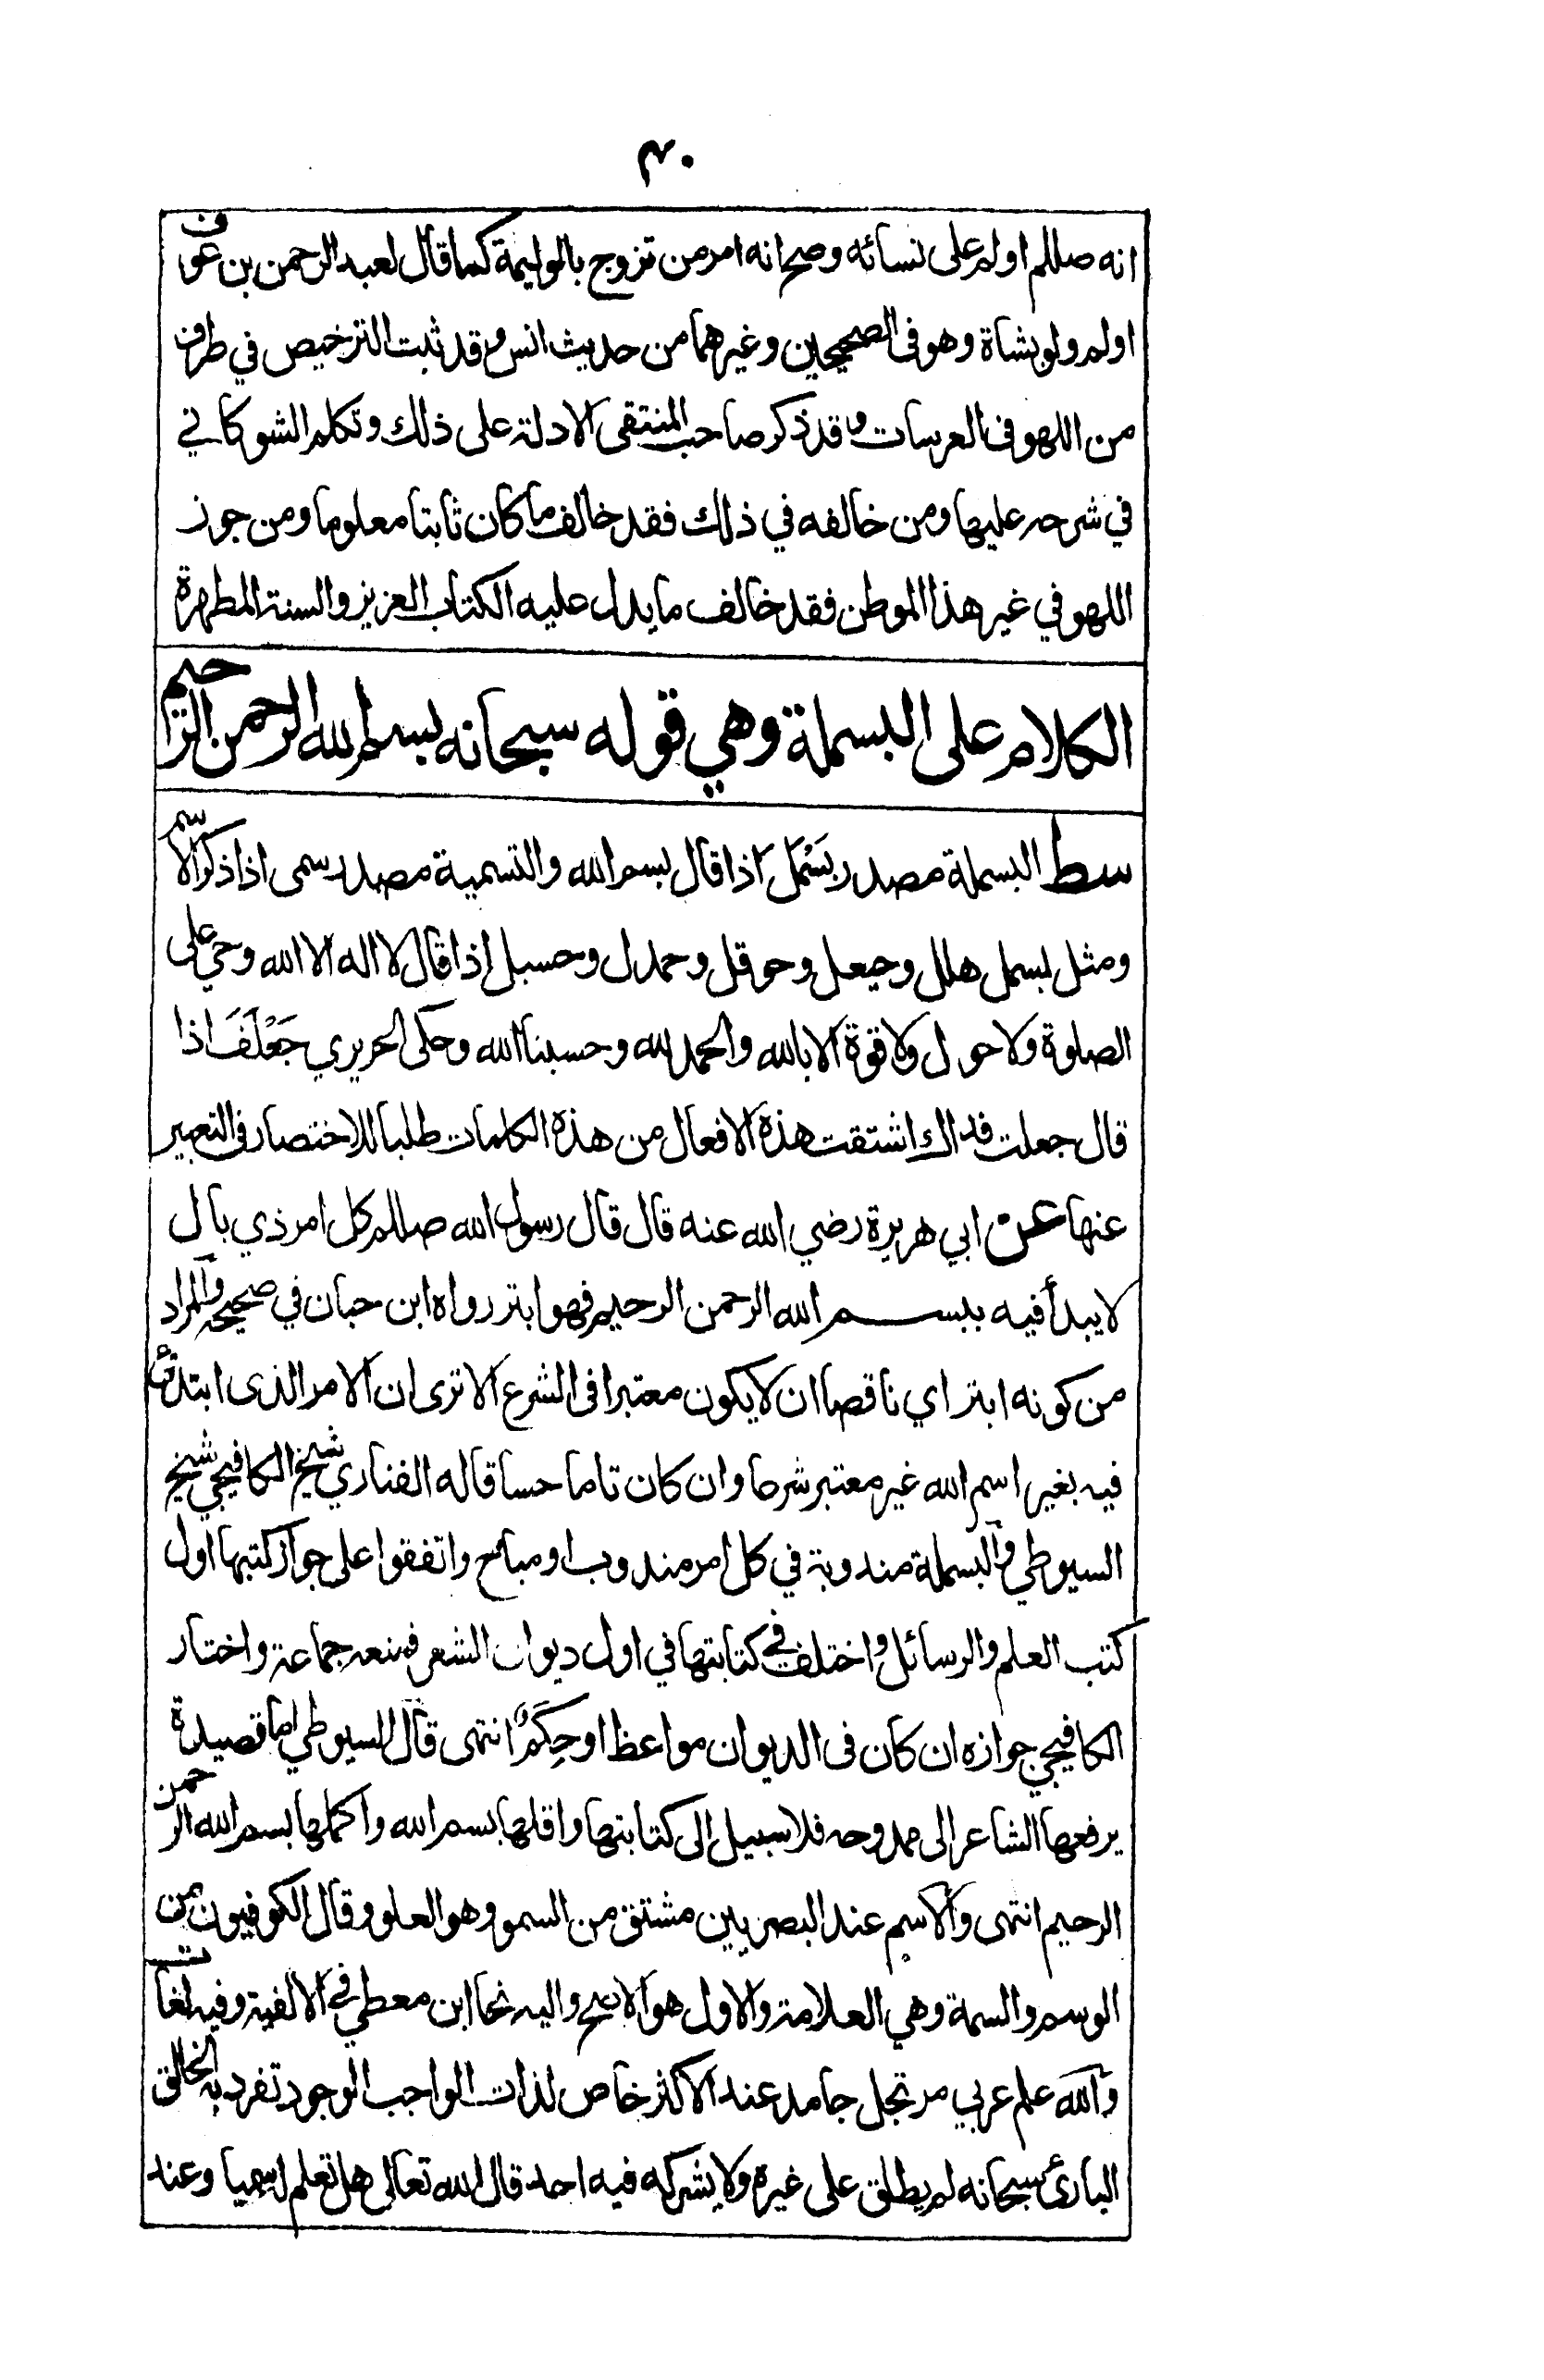 ٣٠
انه صللم اولم على نسائه وصح انه امر من تزوج بالوليمة كما قال لعبد الرحمن بن عوف
اولم ولو بشاة وهو فى الصحيحين وغيرهما من حديث انس وقد ثبت الترخيص في طرف
من اللهو فى العرسات وقد ذكر صاحب المنتقى الادلة على ذلك وتكلم الشوكاني
في شرحه عليها ومن خالفه في ذلك فقد خالف ما كان ثابتا معلوما ومن جوز
اللهو في غير هذا الموطن فقد خالف ما يدل عليه الكتاب العزيز والسنة المطهرة
الكلام على البسملة وهي قوله سبحانه بسم الله الرحمن الرحيم
سط البسملة مصدر بَسْمَلَ اذا قال بسم الله والتسمية مصدر سمى اذا ذكر الاسم
ومثل بسمل هلل وحيعل وحوقل وحمدل وحسبل اذا قال لا اله الا الله وحي على
الصلوة ولا حول ولا قوة الا بالله والحمد لله وحسبنا الله وحكى الحريري جَعْلَفَ اذا
قال جعلت فداك اشتقت هذه الافعال من هذه الكلمات طلبا للاختصار فى التعبير
عنها عن ابي هريرة رضي الله عنه قال قال رسول الله صللم كل امر ذي بال
لا يبدأ فيه ببسم الله الرحمن الرحيم فهو ابتر رواه ابن حبان في صحيحه والمراد
من كونه ابتر اي ناقصا ان لا يكون معتبرا فى الشرع الا ترى ان الامر الذى ابتدئ
فيه بغير اسم الله غير معتبر شرعا وان كان تاما حسا قاله الفناري شيخ الكافيجي شيخ
السيوطي والبسملة مندوبة في كل امر مندوب او مباح واتفقوا على جواز كتبها اول
كتب العلم والرسائل واختلف في كتابتها في اول ديوان الشعر فمنعه جماعة واختار
الكافيجي جوازه ان كان فى الديوان مواعظ او حِكَمٌ انتهى قال السيوطي اما قصيدة
يرفعها الشاعر الى ممدوحه فلا سبيل الى كتابتها واقلها بسم الله واكملها بسم الله الرحمن
الرحيم انتهى والاسم عند البصريين مشتق من السمو وهو العلو وقال الكوفيون من
الوسم والسمة وهي العلامة والاول هو الاصح واليه نحا ابن معطي في الالفية وفيه لغات
والله علم عربي مرتجل جامد عند الاكثر خاص لذات الواجب الوجود تفرد به الخالق
البارئ سبحانه لم يطلق على غيره ولا يشركه فيه احد قال الله تعالى هل تعلم له سميا وعند